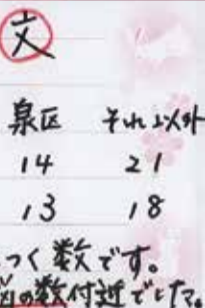 文
泉区 それ以外
14 21
13 18
つく数です。
の数付近でした。